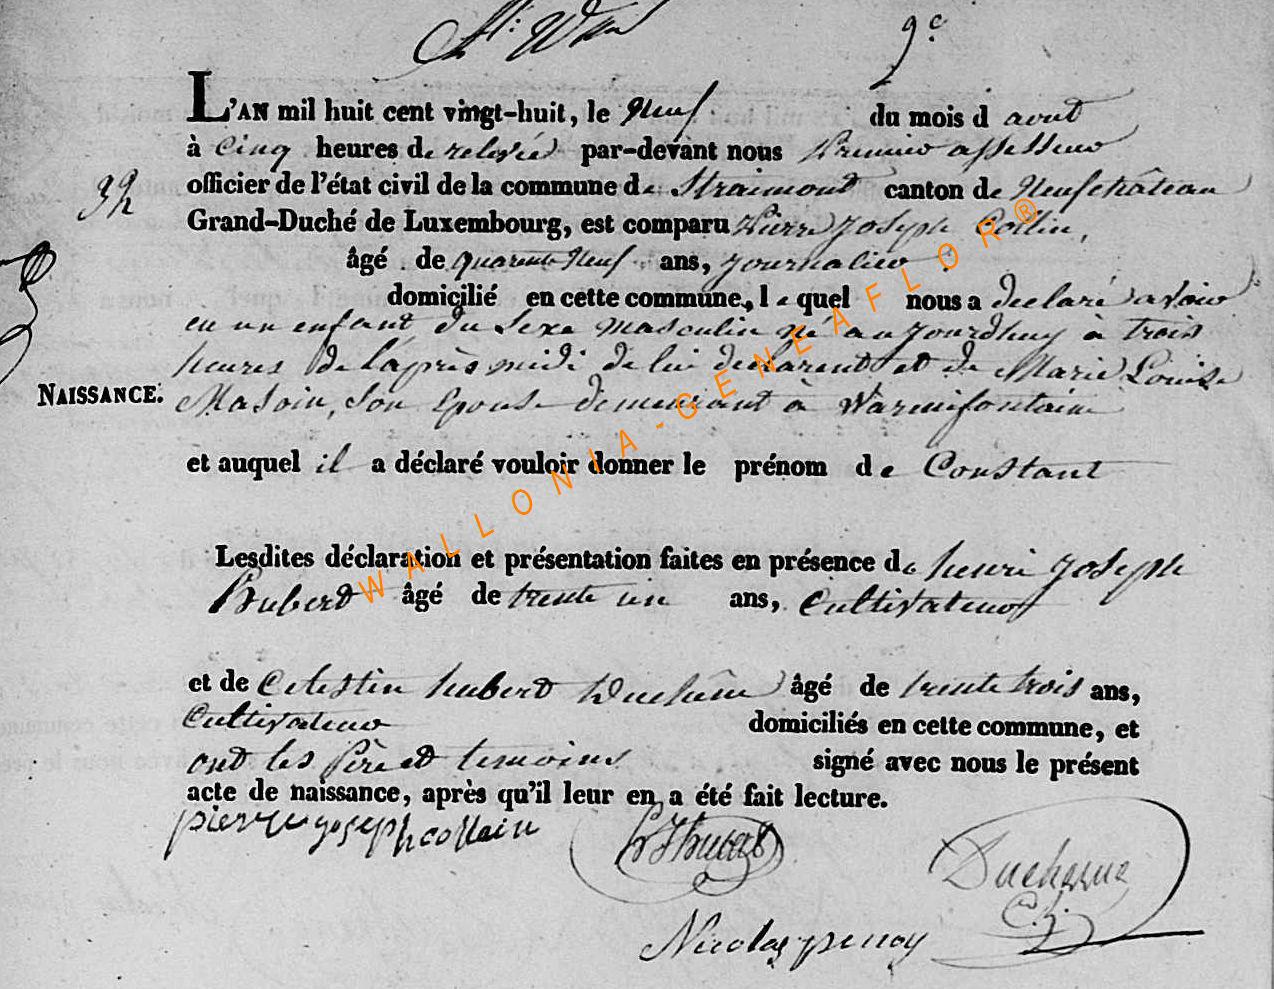 9e
L'AN mil huit cent vingt-huit, le neuf du mois d aout
à cinq heures de relevée par-devant nous premier assesseur
officier de l'état civil de la commune de Straimont canton de Neufchâteau
32
Grand-Duché de Luxembourg, est comparu Pierre Joseph Collin,
âgé de quarente neuf ans, journalier
domicilié en cette commune, le quel nous a declaré avoir
eu un enfant du sexe masculin né aujourdhuy à trois
heures de l'après midi de lui declarent et de Marie Louise
NAISSANCE. Masoin, son Epouse demeurant à Warmifontaine
et auquel il a déclaré vouloir donner le prénom de Constant
Lesdites déclaration et présentation faites en présence de henri Joseph
hubert âgé de trente un ans, Cultivateur
et de Celestin hubert Duchêne âgé de trente trois ans,
Cultivateur domiciliés en cette commune, et
ont les Père et temoins signé avec nous le présent
acte de naissance, après qu'il leur en a été fait lecture.
pierre joseph collein
hJhubert
Duchesne
C. h.
Nicolas penoy
WALLONIA-GENEAFLOR®